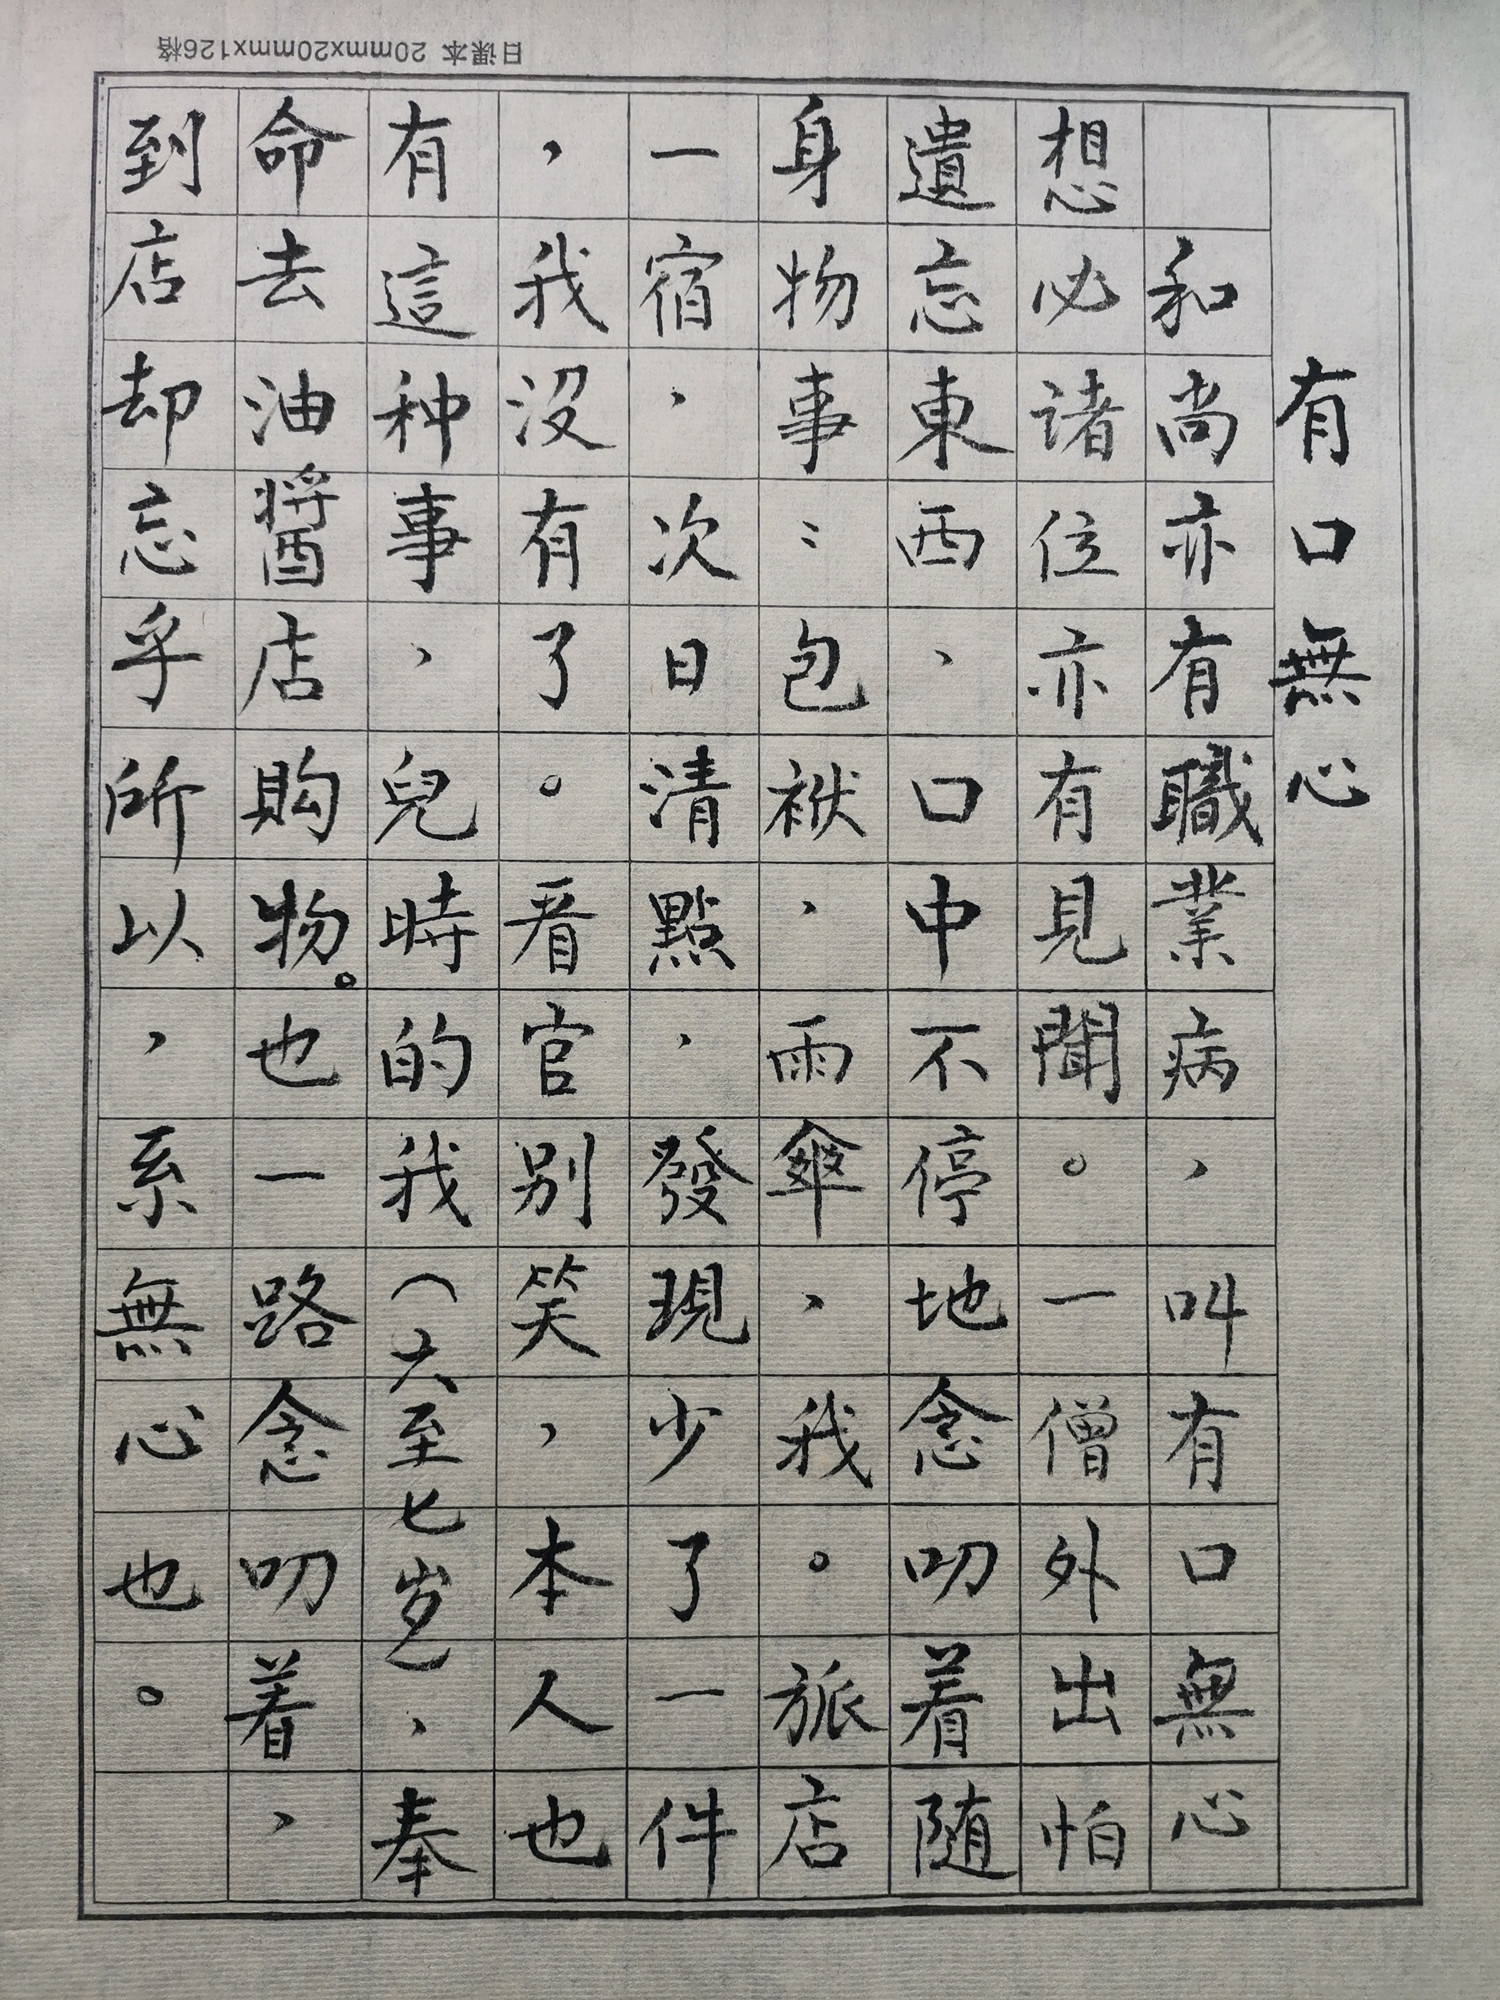 日课本 20mmx20mmx126格
有口無心
和尚亦有職業病，叫有口無心
想必诸位亦有見聞。一僧外出怕
遺忘東西，口中不停地念叨着随
身物事：包袱，雨傘，我。旅店
一宿，次日清點，發現少了一件
，我没有了。看官别笑，本人也
有這种事，兒時的我（六至七岁），奉
命去油醬店購物。也一路念叨着，
到店却忘乎所以，系無心也。